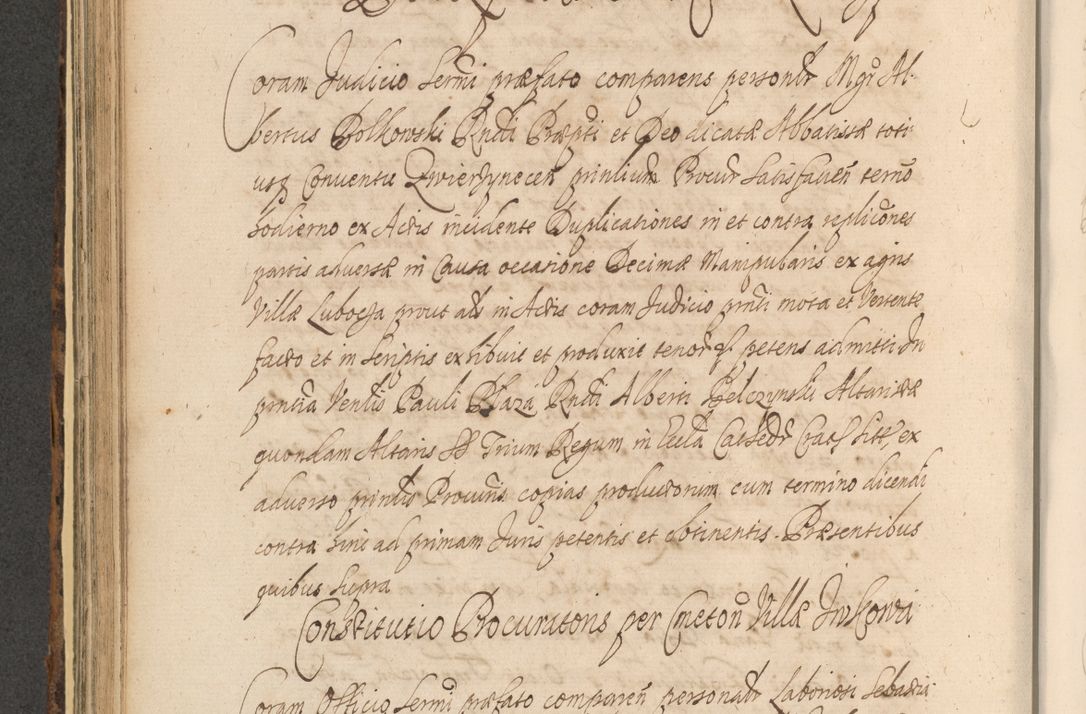 Coram Judicio Sermi præfato comparens personlr Mgr Al-
bertus Bolkowski Rndi Præpti et Deo dicatæ Abbatissæ toti
usq Conventu Zwierzynecen prinlium Procur Satisfacien terno
hodierno ex Actis incidente Duplicationes in et contra replicones
partis adversæ in Causa occasione Decimæ Manipularis ex agris
Villæ Lubocza prout ad in Actis coram Judicio prnti mota et Vertente
facto et in scriptis exhibuit et produxit tenor petens admitti In
pntia Venlis Pauli Plaza Rndi Alberti Helczynski Altaristæ
quondam Altaris SS Trium Regum in Eccla Cathedr Crac siti, ex
adverso prinlis Procuris copias productorum cum termino dicendi
contra hinc ad primam Juris petentis et obtinentis. Præsentibus
quibus supra
Constitutio Procuratoris per Cmeton Villæ Inskowi
Coram Officio Sermi præfato comparen personalr Laboriosi Sebastia